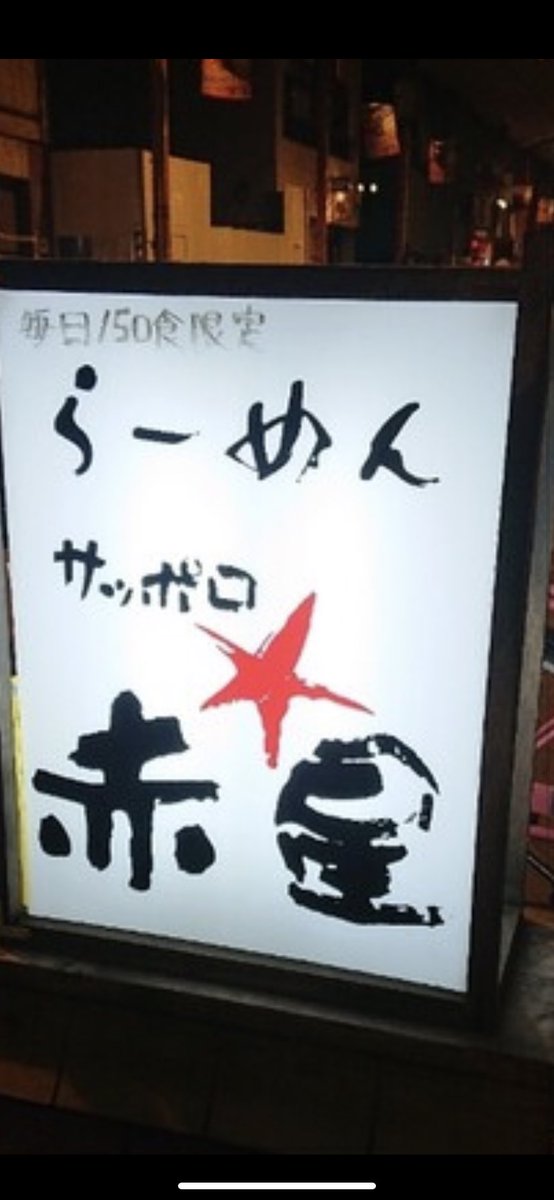 毎日150食限定
らーめん
サッポロ
赤星